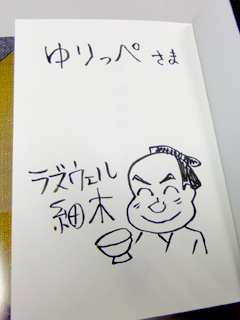 ゆりっぺ さま
ラズウェル
細木